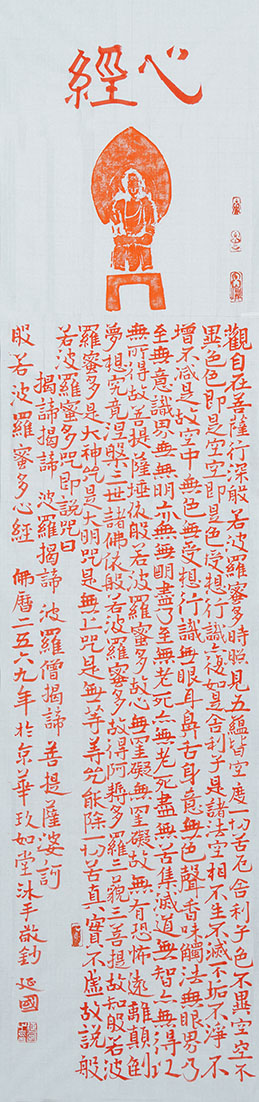 心經
觀自在菩薩行深般若波羅蜜多時照見五蘊皆空度一切苦厄舍利子色不異空空不
異色色即是空空即是色受想行識亦復如是舍利子是諸法空相不生不滅不垢不淨不
增不減是故空中無色無受想行識無眼耳鼻舌身意無色聲香味觸法無眼界乃
至無意識界無無明亦無無明盡乃至無老死亦無老死盡無苦集滅道無智亦無得以
無所得故菩提薩埵依般若波羅蜜多故心無罣礙無罣礙故無有恐怖遠離顛倒
夢想究竟涅槃三世諸佛依般若波羅蜜多故得阿耨多羅三藐三菩提故知般若波
羅蜜多是大神咒是大明咒是無上咒是無等等咒能除一切苦真實不虛故說般
若波羅蜜多咒即說咒曰
揭諦揭諦 波羅揭諦 波羅僧揭諦 菩提薩婆訶
般若波羅蜜多心經 佛曆二五六九年 於京華玖如堂沐手敬鈔 延國